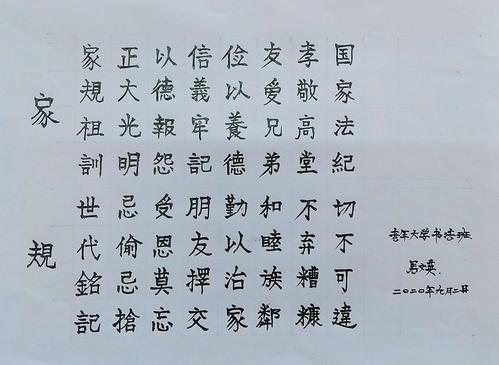 家規
国家法紀切不可違
孝敬高堂不弃糟糠
友愛兄弟和睦族鄰
俭以養德勤以治家
信義牢記朋友擇交
以德報怨受恩莫忘
正大光明忌偷忌搶
家規祖訓世代銘記
老年大学书法班
二〇二〇年九月二日